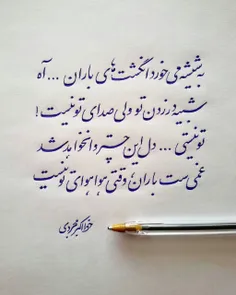 به شیشه می خورد انگشت های باران ... آه
شبیه در زدن تو ولی صدای تو نیست!
تو نیستی ... دل این چتر وا نخواهد شد
غمی ست باران، وقتی هوا هوای تو نیست